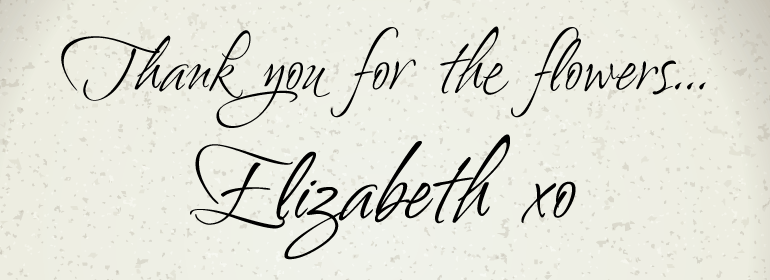 Thank you for the flowers...
Elizabeth xo